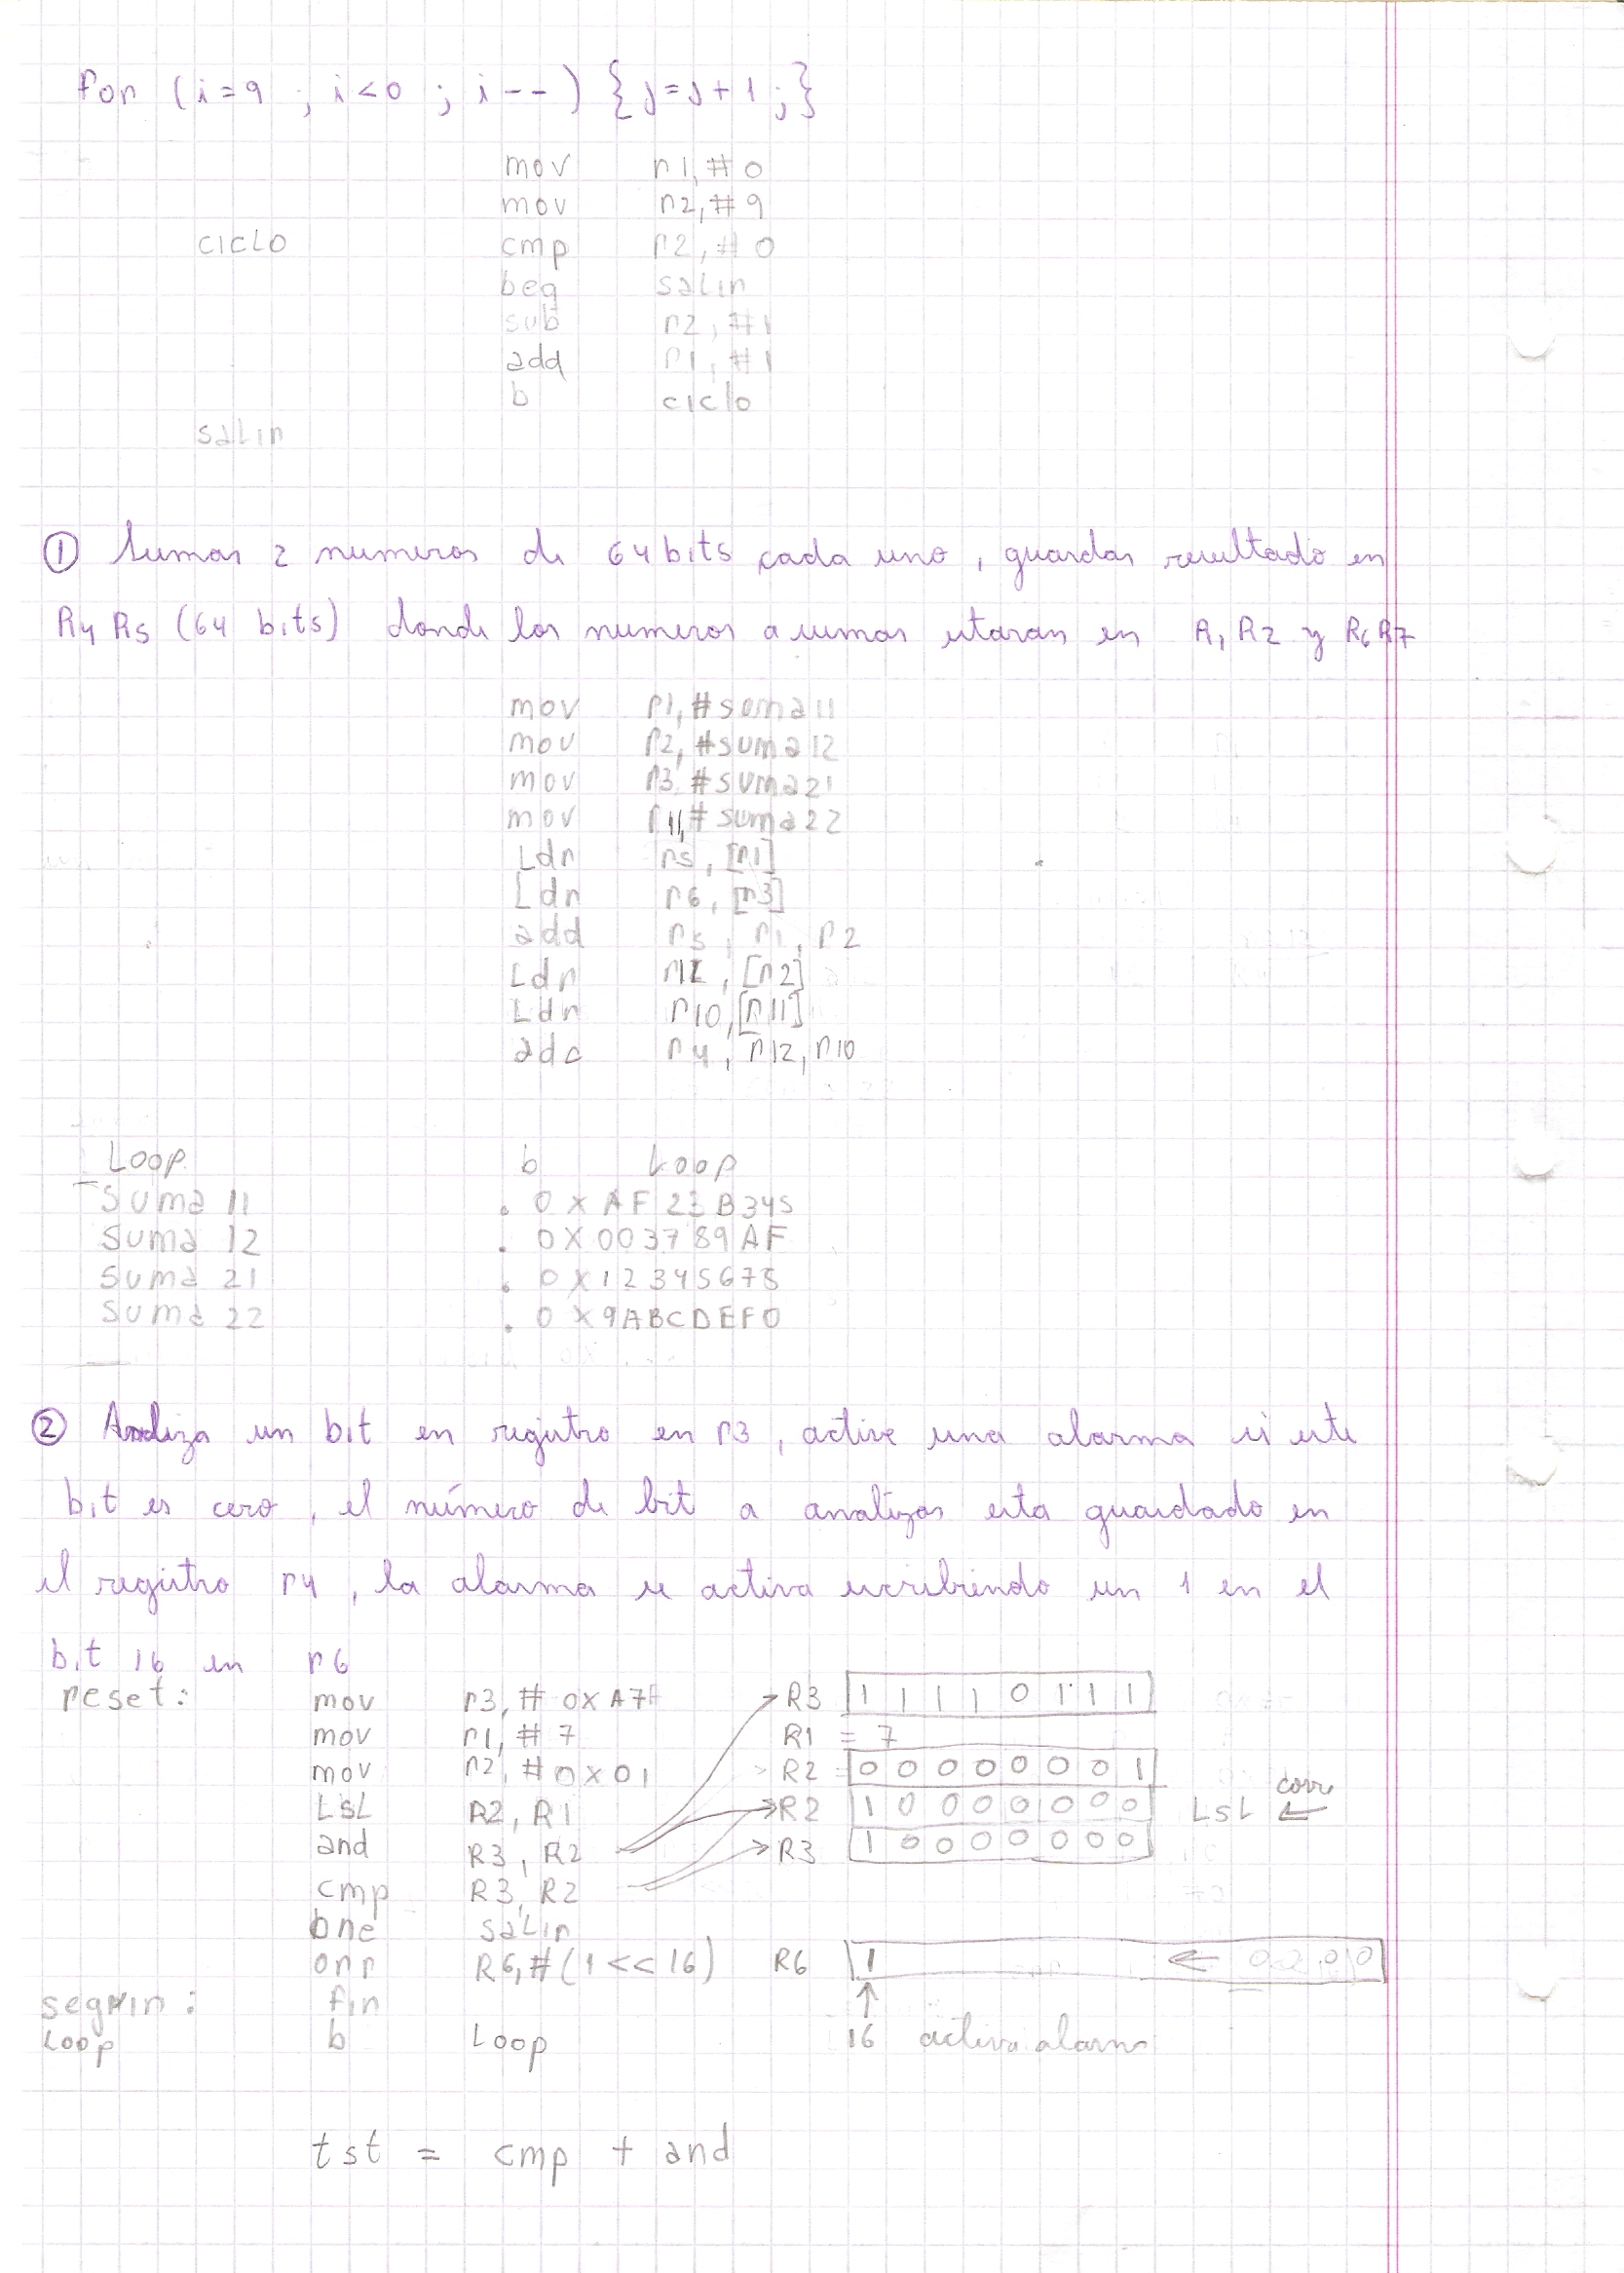 for (i=9 ; i<0 ; i--) {j=j+1;}
mov r1,#0
mov r2,#9
CICLO cmp r2,#0
beq salir
sub r2,#1
add r1,#1
b ciclo
salir
① Sumar 2 numeros de 64 bits cada uno, guardar resultado en
R4 R5 (64 bits) donde los numeros a sumar estaran en R1 R2 y R6 R7
mov r1,#suma11
mov r2,#suma12
mov r3 #suma21
mov r11,#suma22
Ldr r5,[r1]
Ldr r6,[r3]
add r5, r1, r2
Ldr r12,[r2]
Ldr r10,[r11]
adc r4, r12, r10
Loop b Loop
Suma 11 . 0XAF23B345
Suma 12 . 0X003789AF
Suma 21 . 0X12345678
Suma 22 . 0X9ABCDEF0
② Analiza un bit en registro en r3, active una alarma si este
bit es cero, el número de bit a analizar esta guardado en
el registro r4, la alarma se activa escribiendo un 1 en el
bit 16 en r6
reset: mov r3,# 0XA7F R3 1 1 1 1 0 1 1 1
mov r1,#7 R1 = 7
mov r2,#0x01 R2 0 0 0 0 0 0 0 1
LSL R2, R1 R2 1 0 0 0 0 0 0 0 LSL ← corre
and R3, R2 R3 1 0 0 0 0 0 0 0
cmp R3, R2
bne salir
orr R6,#(1<<16) R6 1 ← 0 0 0 0
seguir: fin ↑
Loop b Loop 16 activa alarma
tst = cmp + and